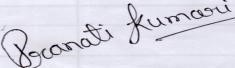 Pranati Kumari